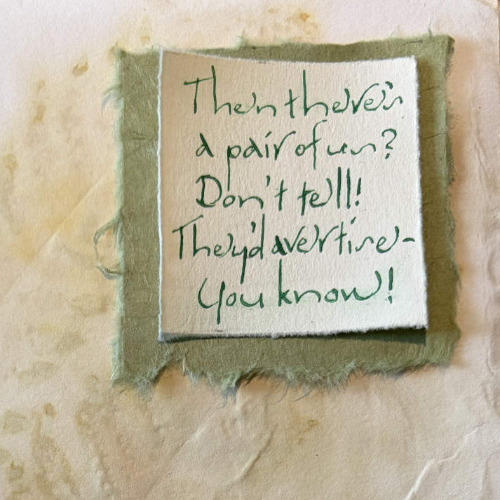 Then there's
a pair of us?
Don't tell!
They'd avertise-
You know!